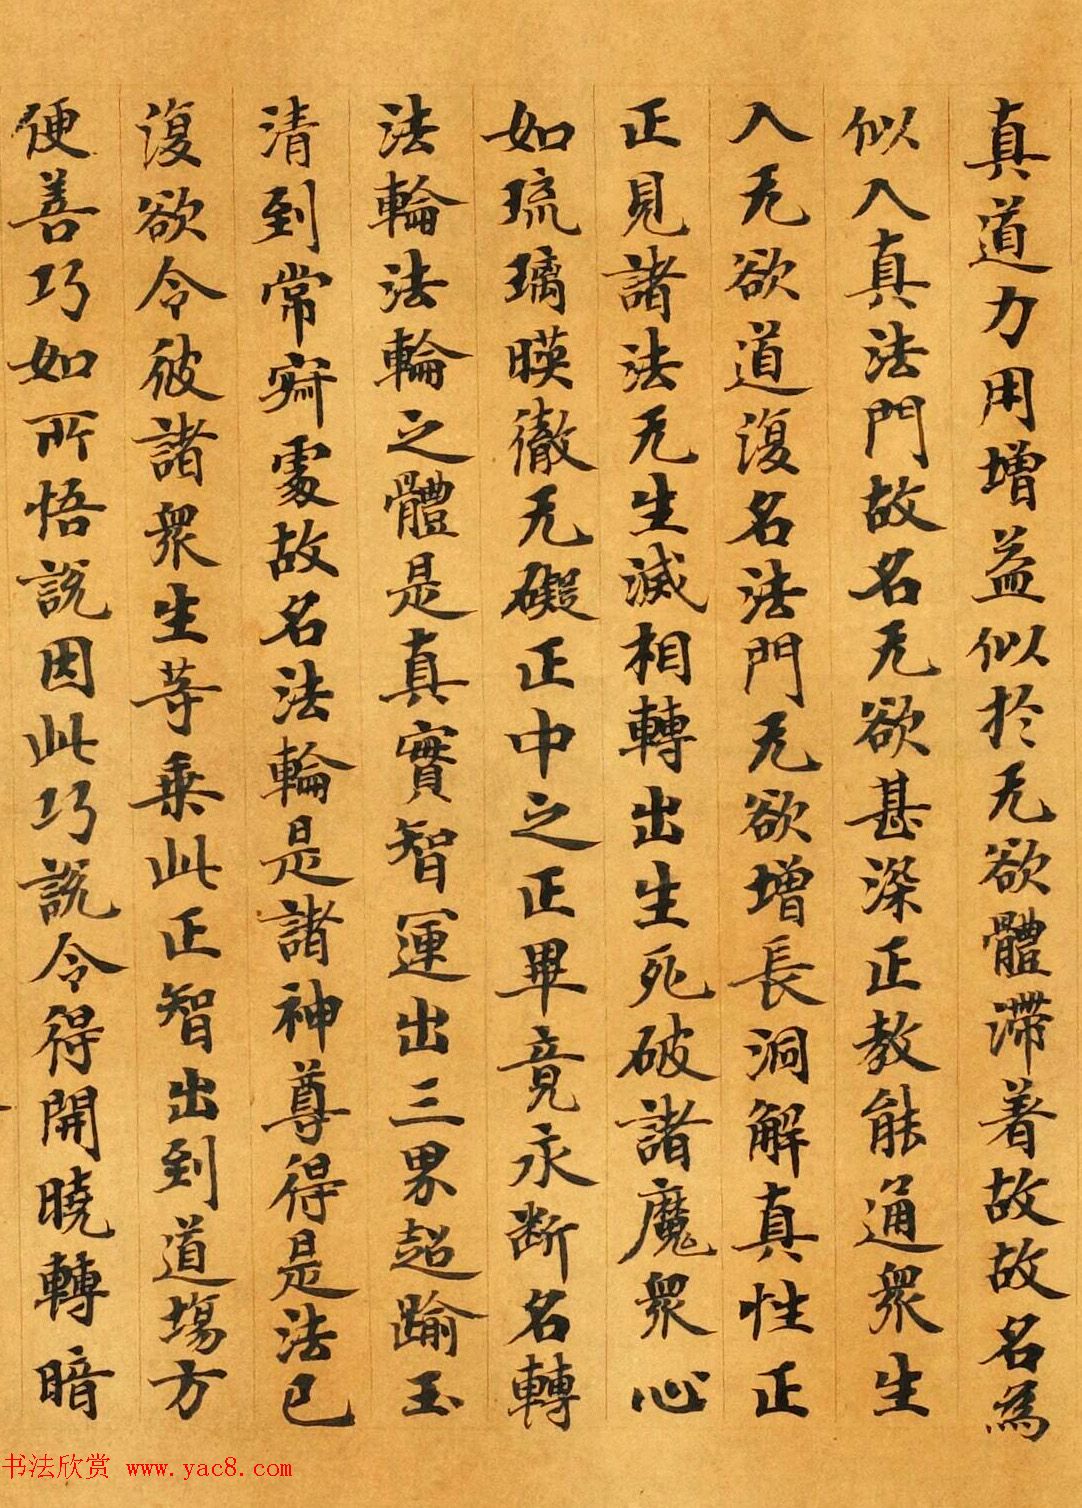 真道力用増益似於无欲體滯著故故名為
似入真法門故名无欲甚深正教能通衆生
入无欲道復名法門无欲増長洞解真性正
正見諸法无生滅相轉出生死破諸魔衆心
如琉璃暎徹无礙正中之正畢竟永断名轉
法輪法輪之體是真實智運出三界超踰玉
清到常寂處故名法輪是諸神尊得是法已
復欲令彼諸衆生等乗此正智出到道場方
便善巧如所悟說因此巧說令得開曉轉暗
书法欣赏 www.yac8.com